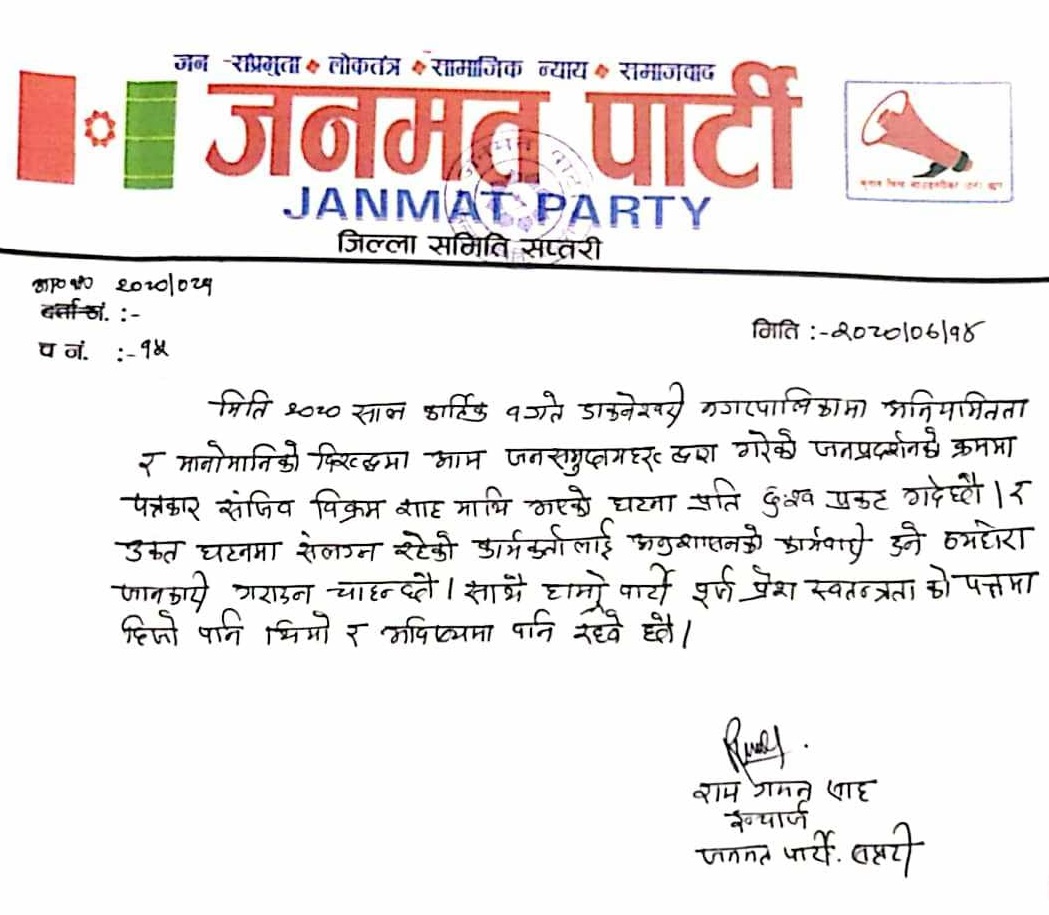 जन -संप्रभुता ◆ लोकतंत्र ◆ सामाजिक न्याय ◆ समाजवाद
जनमत पार्टी
JANMAT PARTY
जिल्ला समिति सप्तरी
२०८०/०८१
दर्ता नं. :-
प नं. :- १५
मिति :-२०८०/०७/१४
मिति २०८० साल कार्तिक १ गते डाकनेश्वरी नगरपालिकामा अनियामितता
र मानोमानिको विरुद्धमा आम जनसमुदायहरु द्वारा गरेको जनप्रदर्शनको क्रममा
पत्रकार संजिव विक्रम शाह माथि भएको घटना प्रति दुःख प्रकट गर्दछौ । र
उक्त घटनमा संलग्न रहेको कार्यकर्ता लाई अनुशासनको कार्यवाही हुने व्यहोरा
जानकारी गराउन चाहन्छौ । साथै हाम्रो पार्टी पूर्ण प्रेश स्वतन्त्रता को पक्षमा
हिजो पनि थियो र भविष्यमा पनि रहने छौ ।
राम गमन साह
इन्चार्ज
जनमत पार्टी. सप्तरी